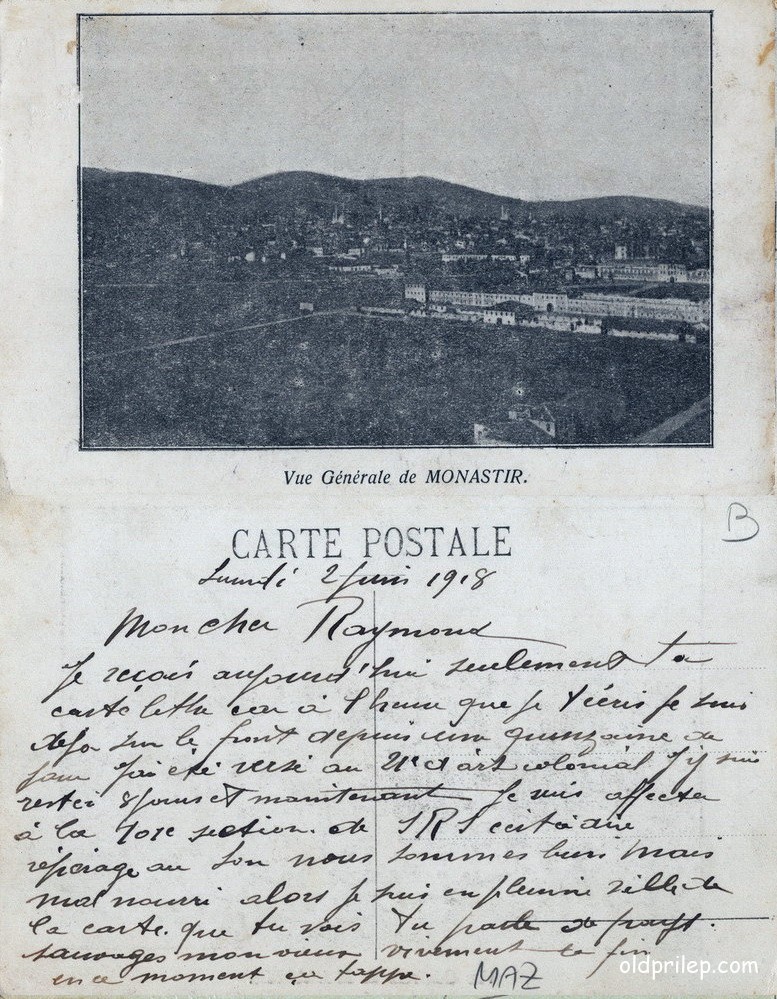 Vue Générale de MONASTIR.
CARTE POSTALE
B
Lundi 2 Juin 1918
Mon cher Raymond
Je reçois aujourd'hui seulement ta
carte lettre à l'heure que je t'écris je suis
deja sur le front depuis une quinzaine de
jour J'ai été versé au 21e d'art colonial J'y suis
resté 8 jours et maintenant je suis affecter
à la 101e section de SRS cest à dire
répérage au son nous sommes bien mais
mal nourri alors je suis en pleinne ville de
la carte que tu vois tu parle de pays
sauvages mon vieux vivement la fin
en ce moment ça tappe.
MAZ
oldprilep.com